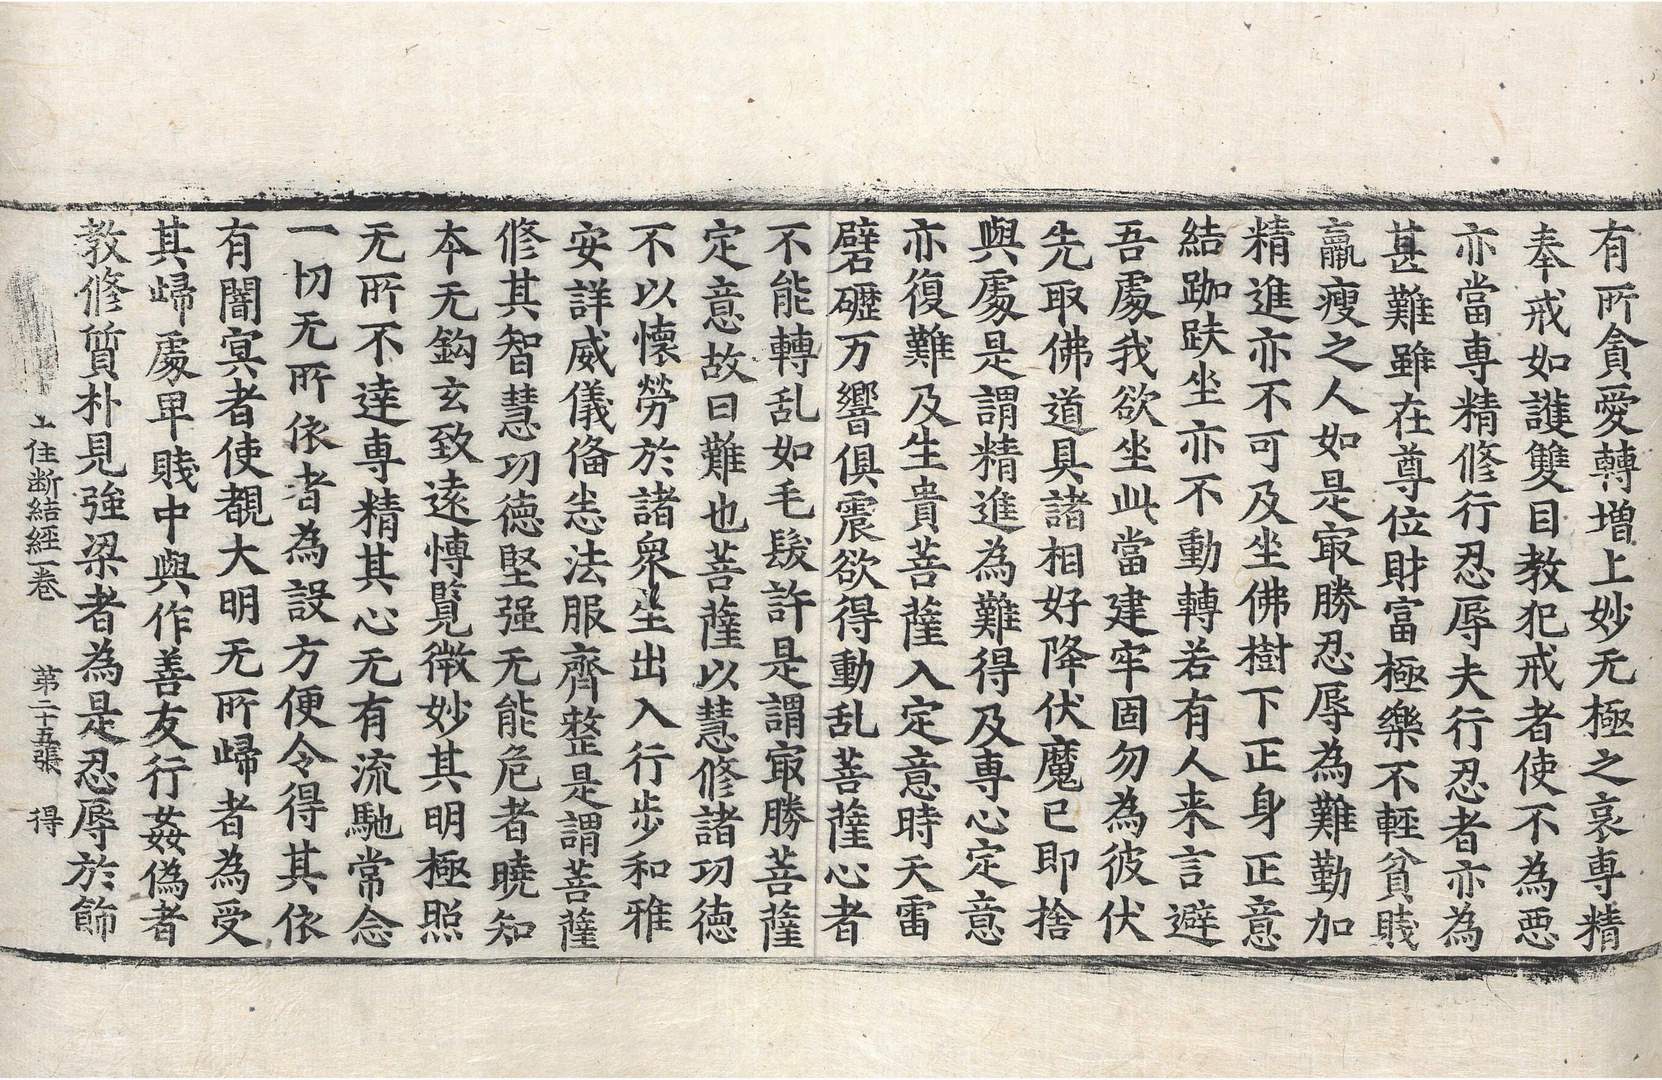 有所貪愛轉增上妙无極之哀専精
奉戒如護雙目教犯戒者使不為惡
亦當専精修行忍辱夫行忍者亦為
甚難雖在尊位財富極樂不輕貧賎
羸瘦之人如是㝡勝忍辱為難勤加
精進亦不可及坐佛樹下正身正意
結跏趺坐亦不動轉若有人来言避
吾處我欲坐此當建牢固勿為彼伏
先取佛道具諸相好降伏魔已即捨
與處是謂精進為難得及専心定意
亦復難及生貴菩薩入定意時天雷
礔礰万響俱震欲得動乱菩薩心者
不能轉乱如毛髮許是謂㝡勝菩薩
定意故曰難也菩薩以慧修諸功德
不以懷勞於諸衆坐出入行步和雅
安詳威儀俻悉法服齊整是謂菩薩
修其智慧功德堅强无能危者曉知
本无鈎玄致遠博覧微妙其明極照
无所不達専精其心无有流馳常念
一切无所依者為設方便令得其依
有闇㝠者使覩大明无所歸者為受
其歸處卑賎中與作善友行姦偽者
教修質朴見強梁者為是忍辱於飾
十住断結經一卷　第二十五張　得